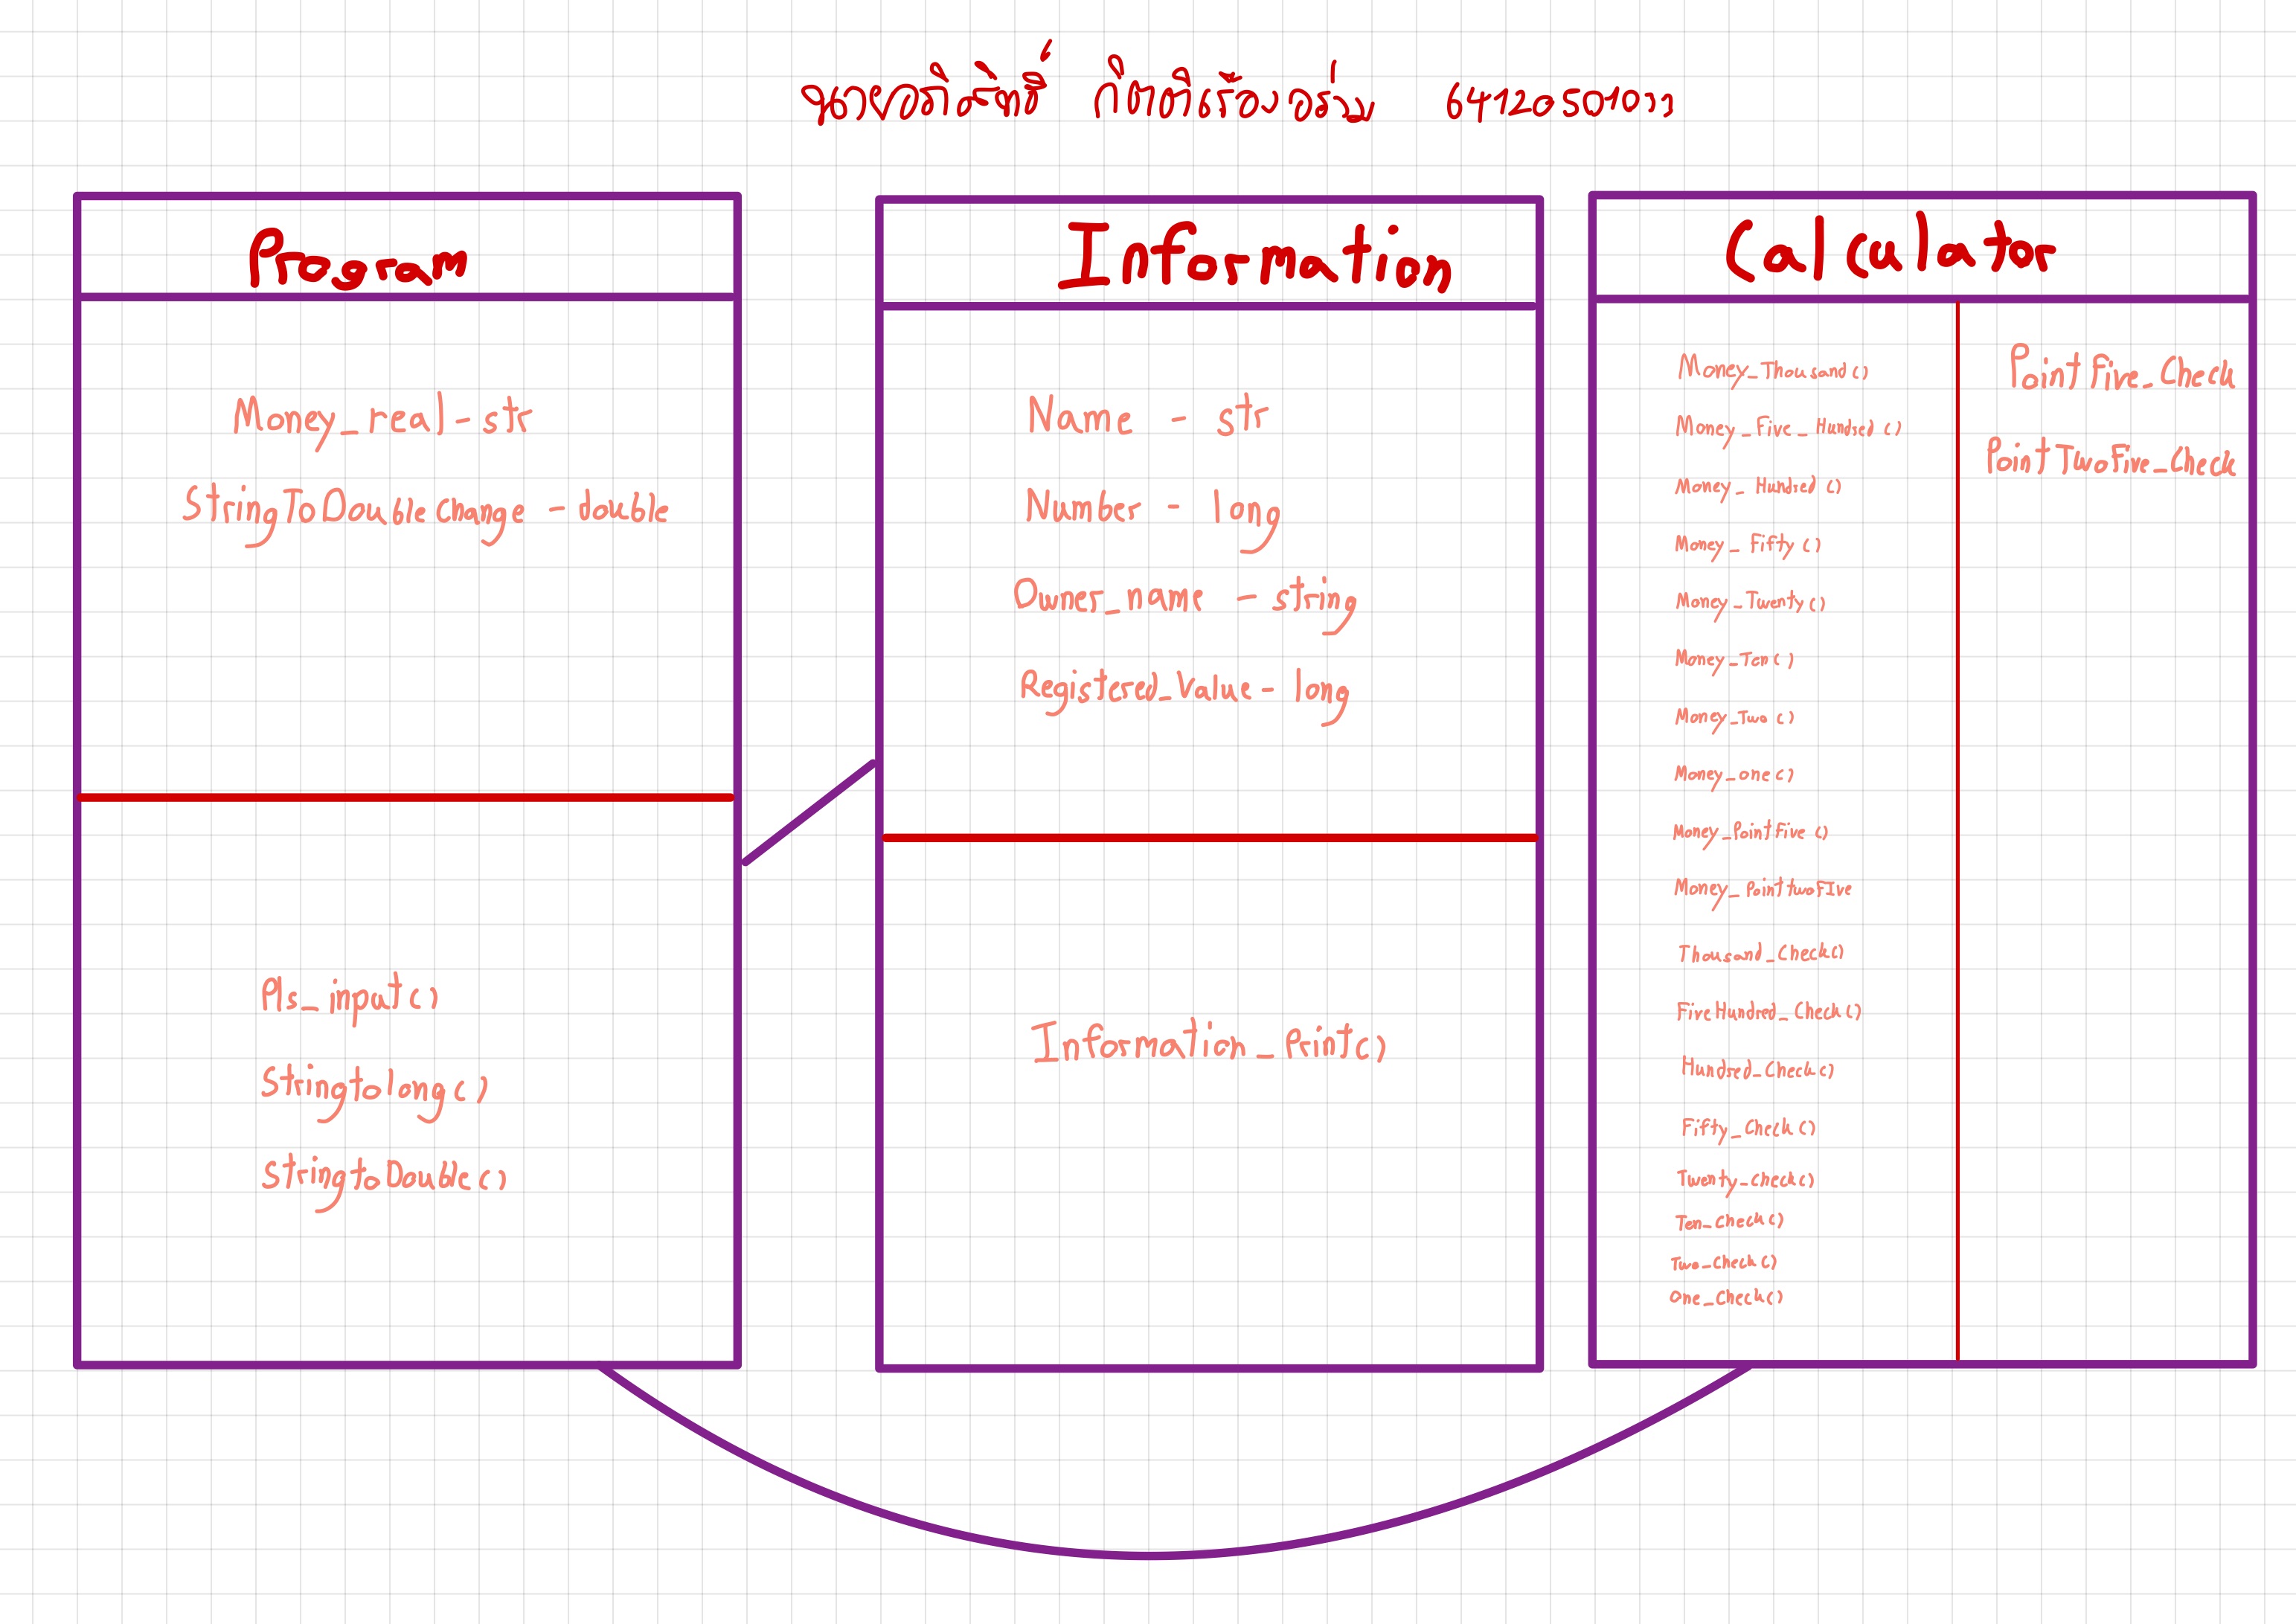 นายอติสิทธิ์ กิตติเรืองอร่าม 64120501077
Program
Money_real - str
StringToDoublechange - double
Pls_input()
Stringtolong()
StringtoDouble()
Information
Name - str
Number - long
Owner_name - string
Registered_Value - long
Information_Print()
Calculator
Money_Thousand()
Money_Five_Hundred()
Money_Hundred()
Money_Fifty()
Money_Twenty()
Money_Ten()
Money_Two()
Money_one()
Money_PointFive()
Money_PointtwoFIve
Thousand_Check()
FiveHundred_Check()
Hundred_Check()
Fifty_Check()
Twenty_check()
Ten_Check()
Two_Check()
One_Check()
PointFive_Check
PointTwoFive_Check